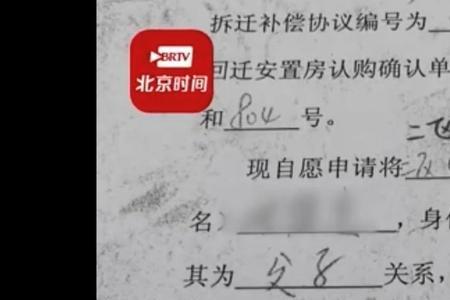 拆迁补偿协议编号为
BRTV
北京时间
回迁安置房认购确认单
和804号。
现自愿申请将
名)
,身
其为父子关系,